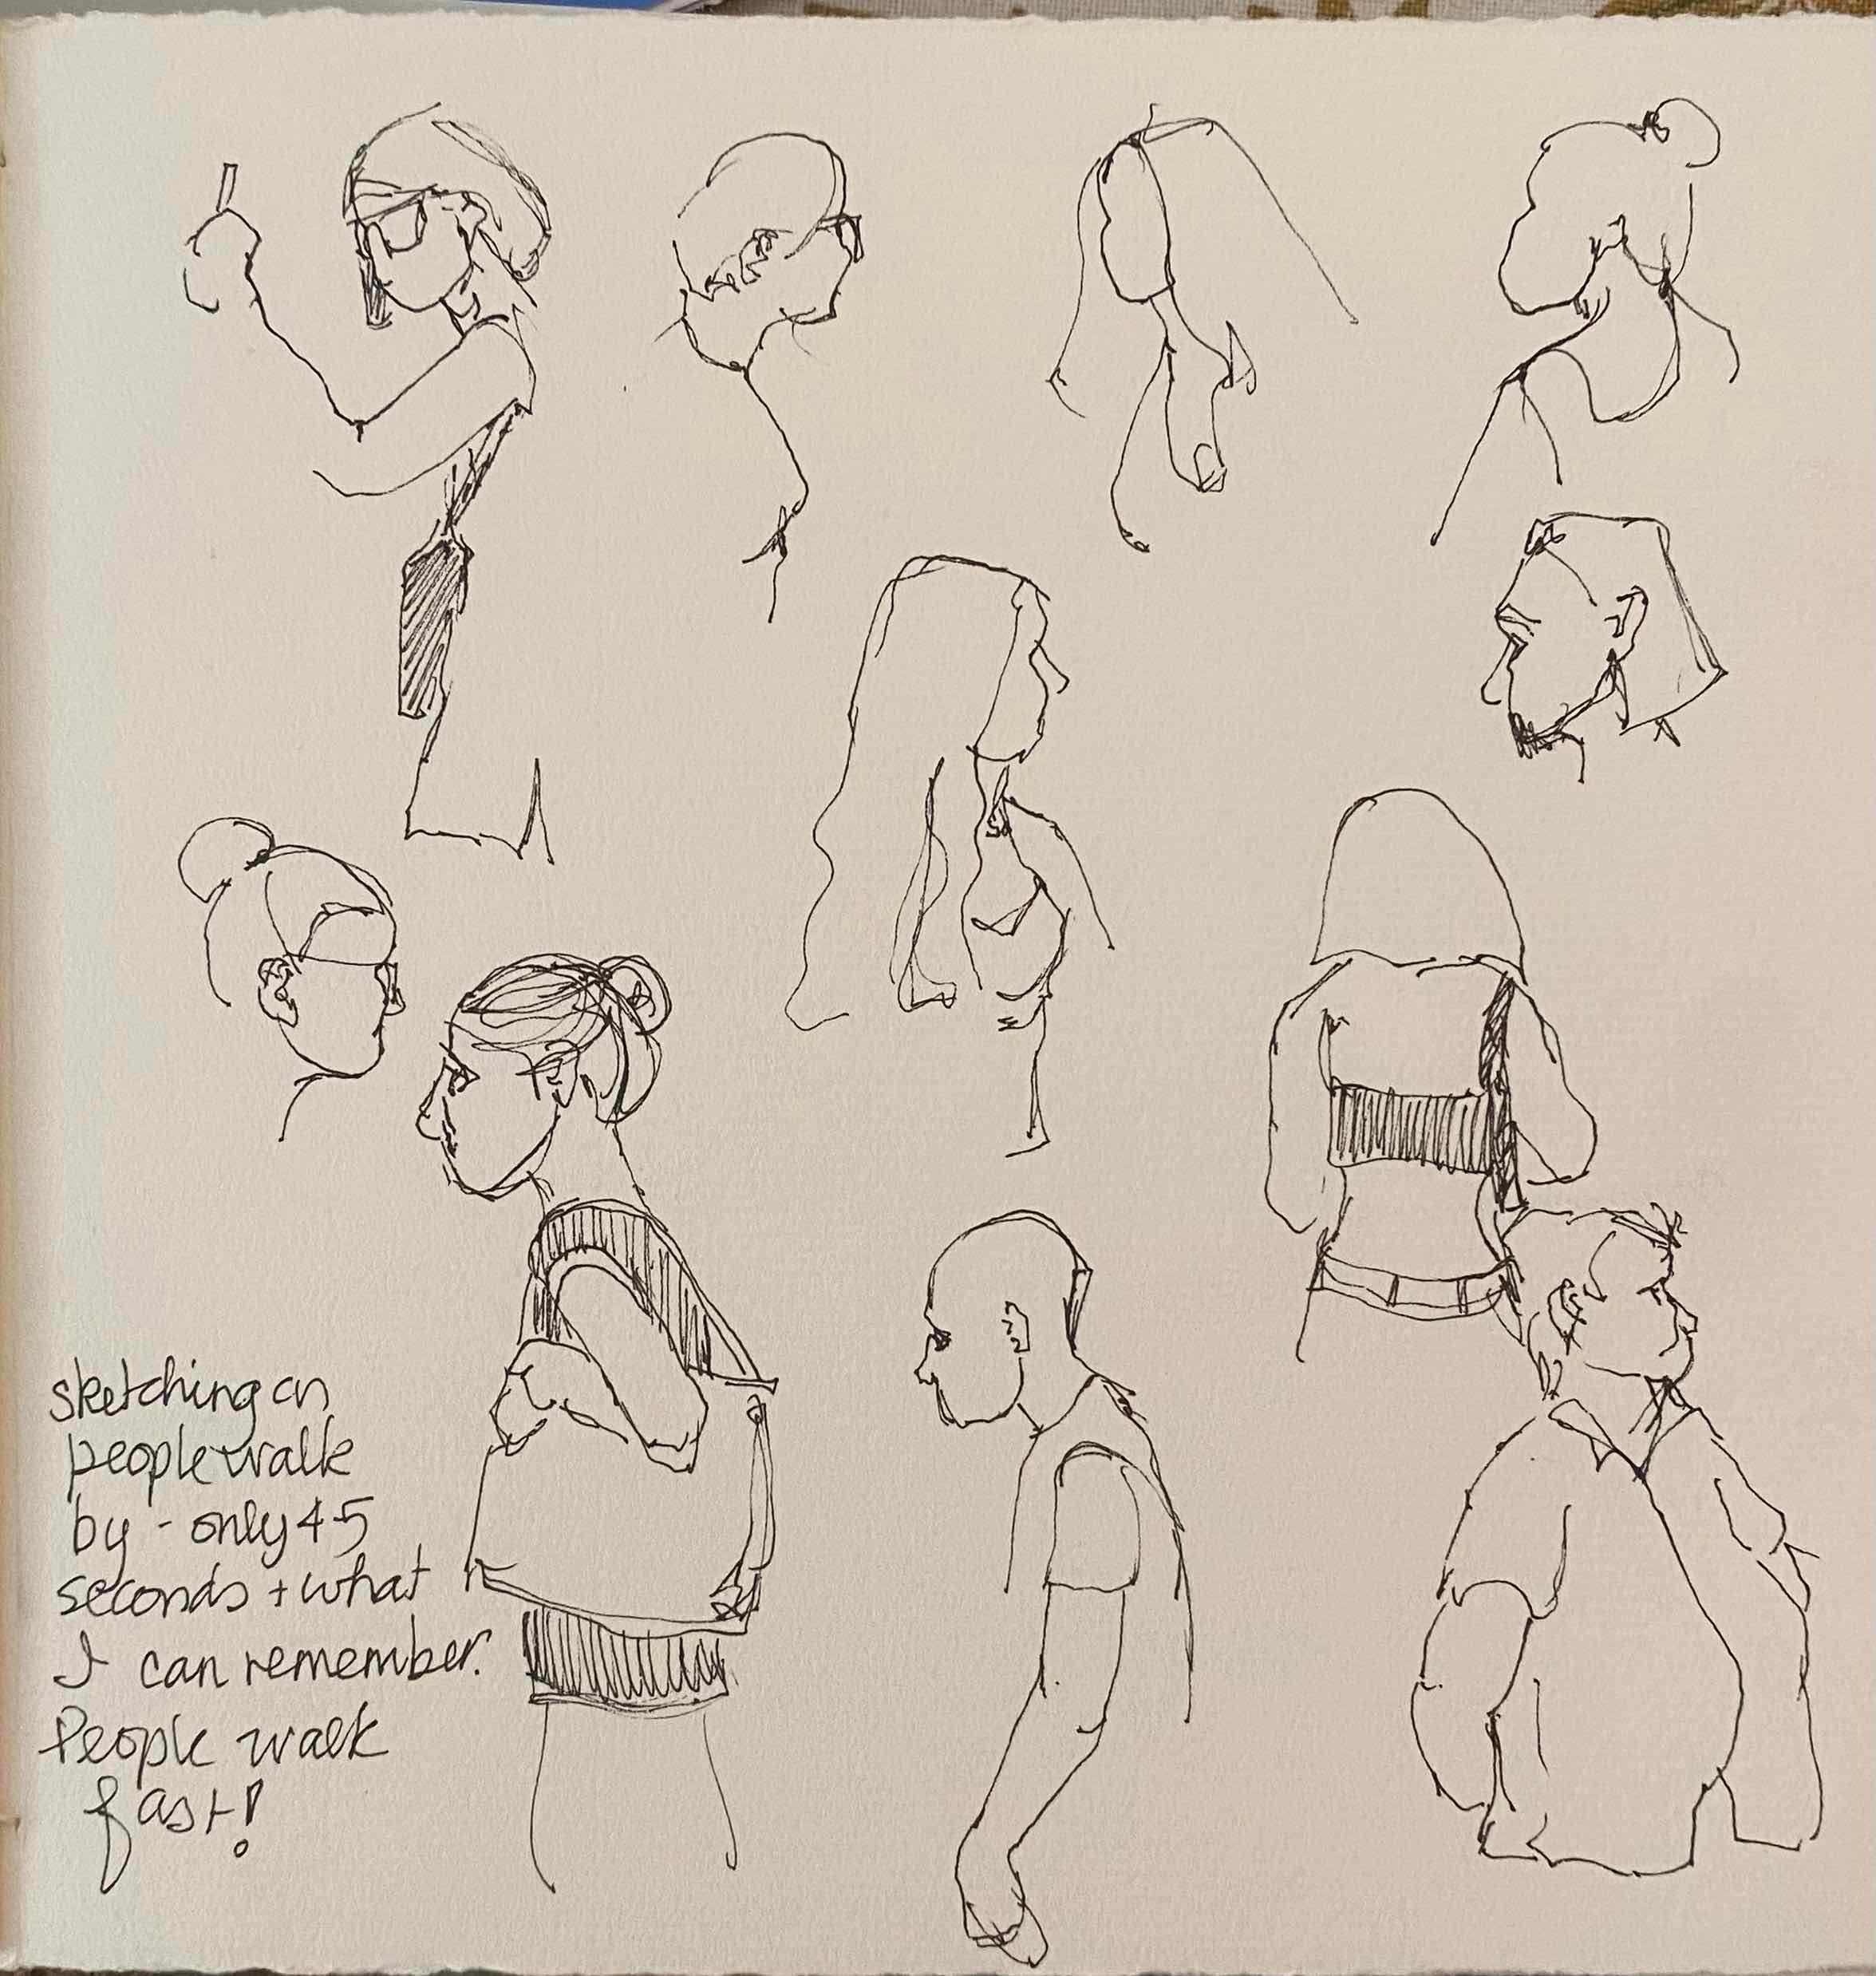 sketching on
people walk
by - only 45
seconds + what
I can remember.
People walk
fast!